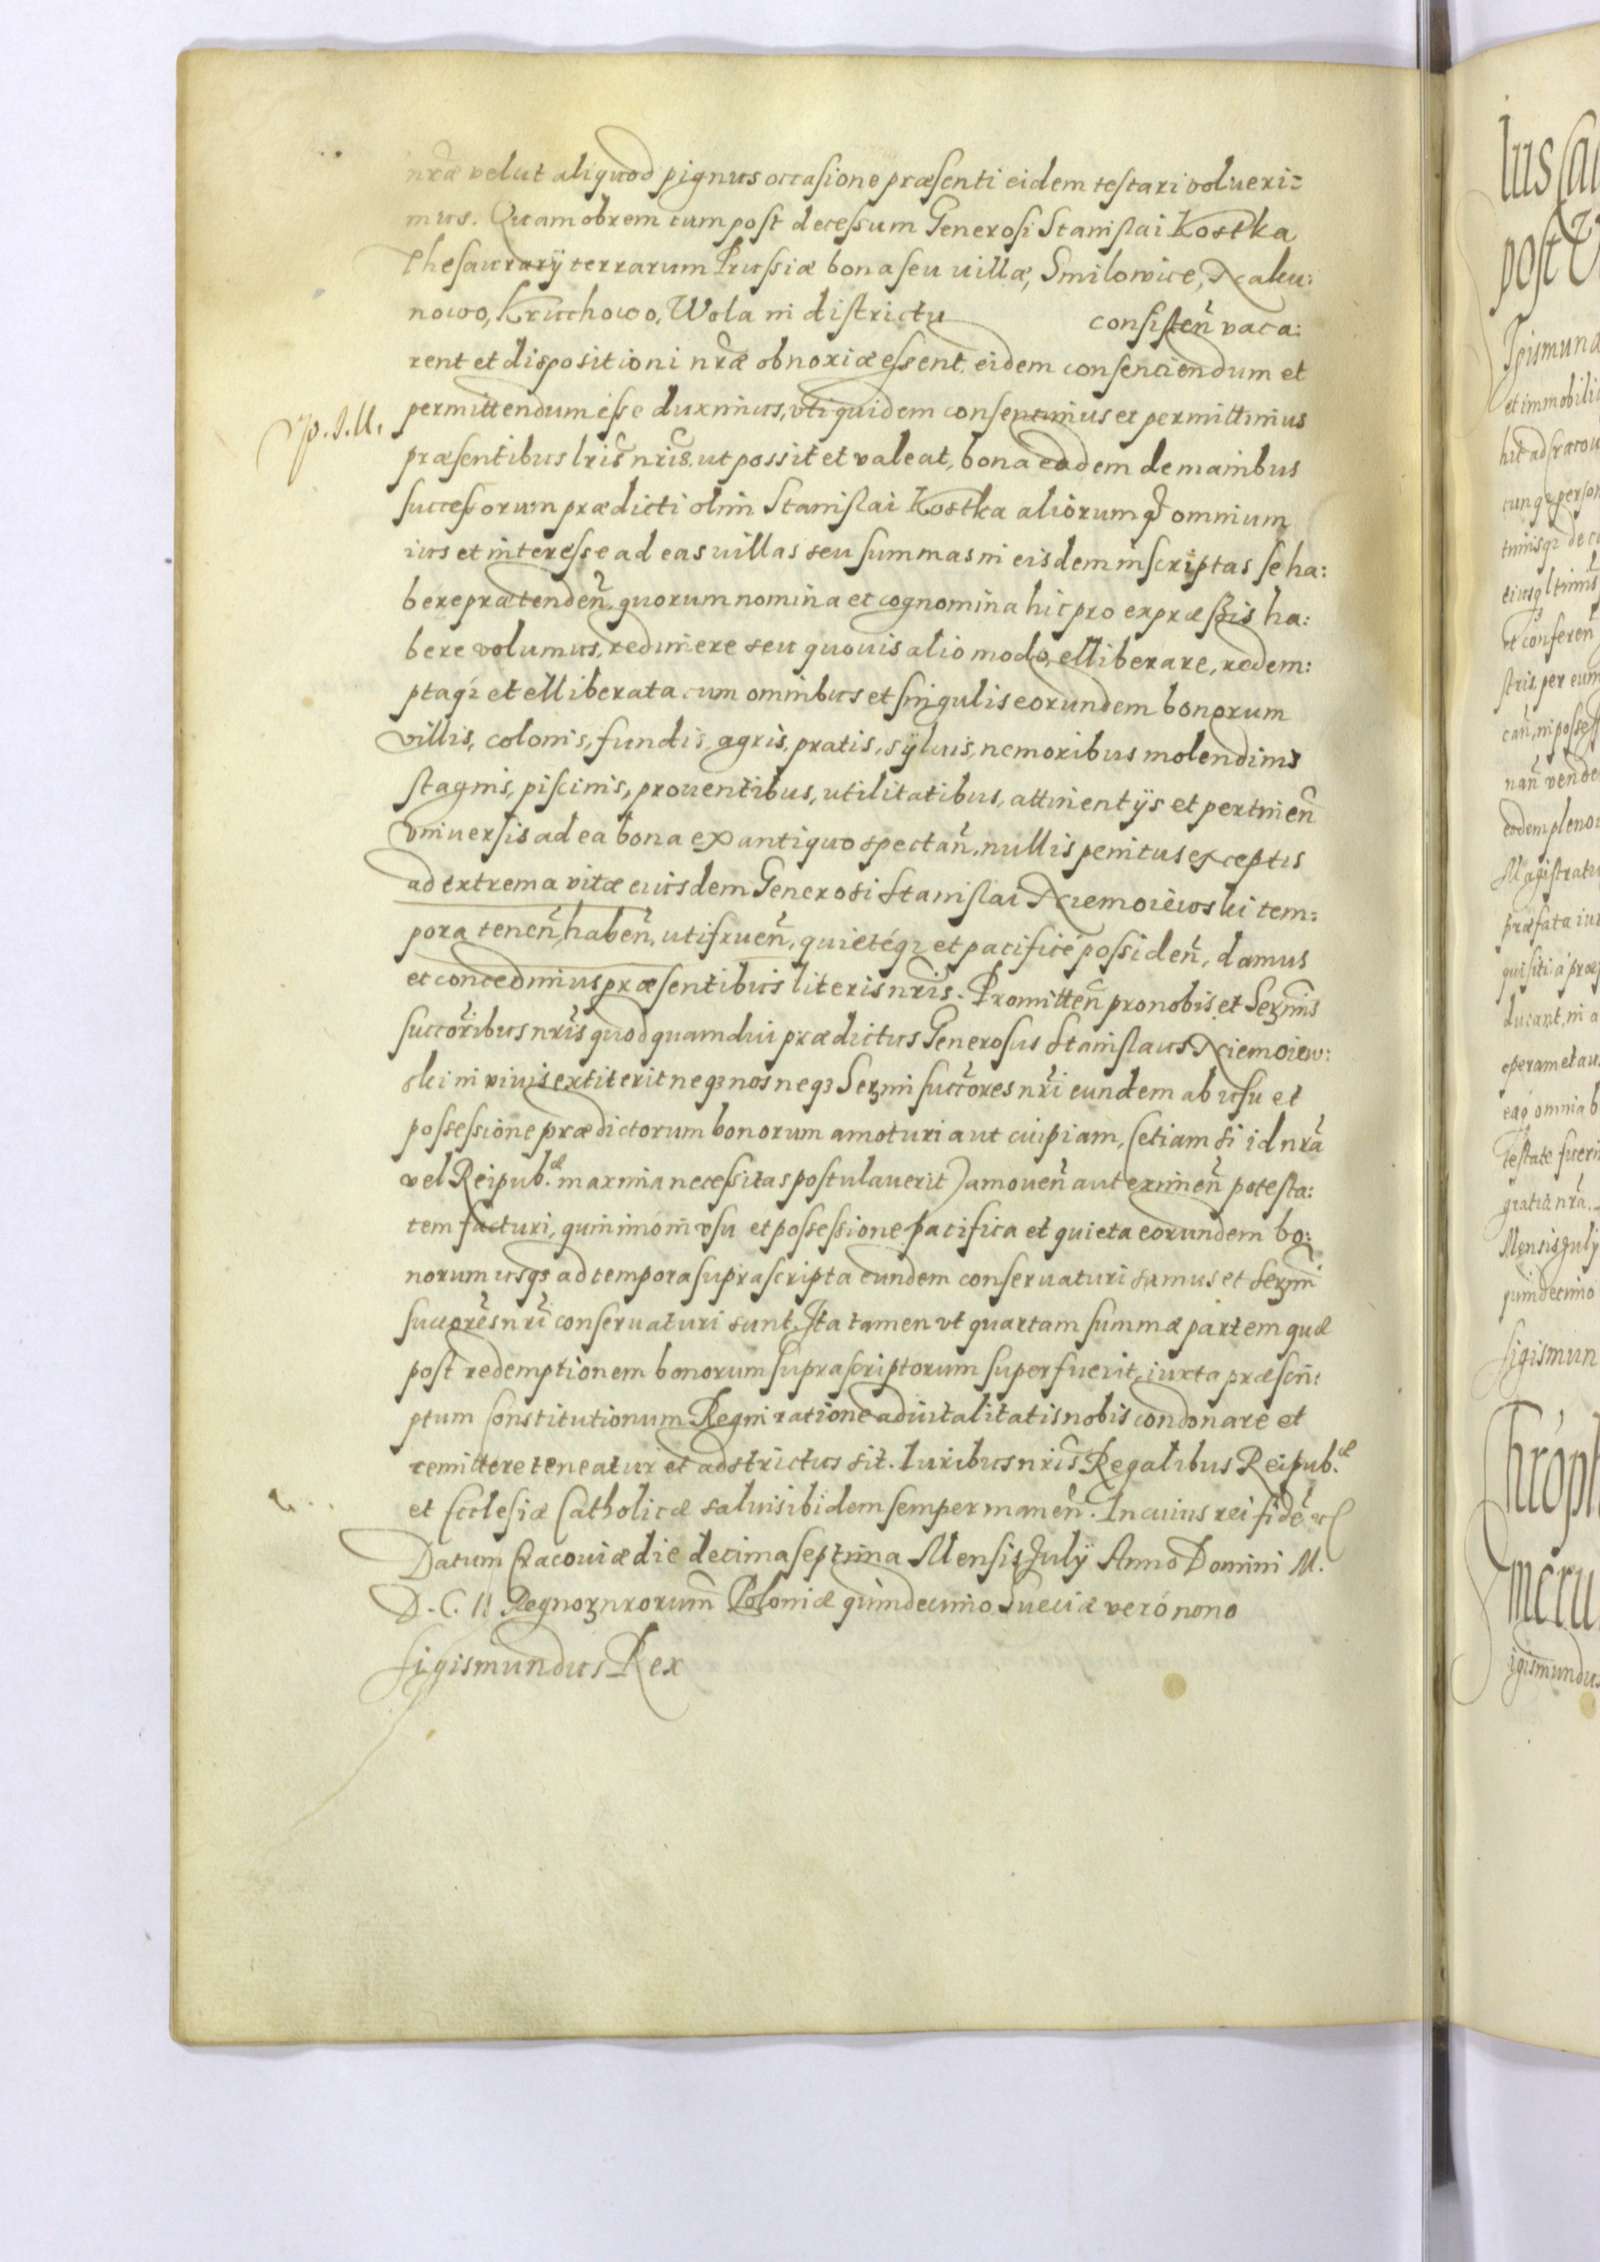 nr̃æ velut aliquod pignus occasione præsenti eidem testari volueri=
mus. Quamobrem cum post decessum Generosi Stanislai Kostka
Thesaurarÿ terrarum Prussiæ bona seu uillæ, Smilowice,
nowo, Kruchowo, Wola in districtu consisteñ vaca:
rent et dispositioni nr̃æ obnoxiæ essent, eidem consenciendum et
permittendum esse duximus, vti quidem consentimus et permittimus
p. J. M.
præsentibus lris̃ nris̃, ut possit et valeat, bona eadem de manibus
successorum prædicti olim Stanislai Kostka aliorumq̨ omnium
ius et interesse ad eas uillas seu summas in eisdem inscriptas se ha:
bere prætendeñ, quorum nomina et cognomina hic pro expræssis ha:
bere volumus, redimere seu quouis alio modo, elliberare, redem:
ptaqȝ et elliberata cum omnibus et singulis eorundem bonorum
villis, colonis, fundis, agris, pratis, sÿluis, nemoribus molendinis
stagnis, piscinis, prouentibus, utilitatibus, attinentÿs et pertineñ
Vniuersis ad ea bona ex antiquo spectañ, nullis penitus exceptis
ad extrema vitæ eiusdem Generosi Stanislai Niemoiewski tem:
pora teneñ, habeñ, utifrueñ, quietéqȝ et pacificé possideñ, damus
et concedimus præsentibus literis nris̃. Promitteñ pro nobis et Serȝmis̃
succoribus̃ nris̃ quod quamdiu prædictus Generosus Stanislaus Niemoiew:
ski in viuis extiterit neqȝ nos neqȝ Serȝmi succores̃ nrĩ eundem ab usu et
possessione prædictorum bonorum amoturi aut cuipiam, (etiam si id nrã
vel Reipub.æ maxima necessitas postulauerit) amoueñ aut eximeñ potesta:
tem facturi, quinimo in vsu et possessione pacifica et quieta eorundem bo:
norum usqȝ ad tempora suprascripta eundem conseruaturi sumus et Serȝmi
succores̃ nrĩ conseruaturi sunt. Ita tamen vt quartam summæ partem quæ
post redemptionem bonorum suprascriptorum superfuerit, iuxta præscri:
ptum Constitutionum Regni ratione aduitalitatis nobis condonare et
remittere teneatur et adstrictus sit. Iuribus nris̃ Regalibus Reipub.æ
et Ecclesiæ Catholicæ saluis ibidem semper maneñ. In cuius rei fidẽ etc
Datum Cracouiæ die decima septima Mensis Julÿ Anno Domini M.
D. C. II Regnorȝ nrorum̃ Poloniæ quindecimo Sueciæ veró nono
Sigismundus Rex
post
et immobili
Mensis Julÿ
quindecimo
Sigismun